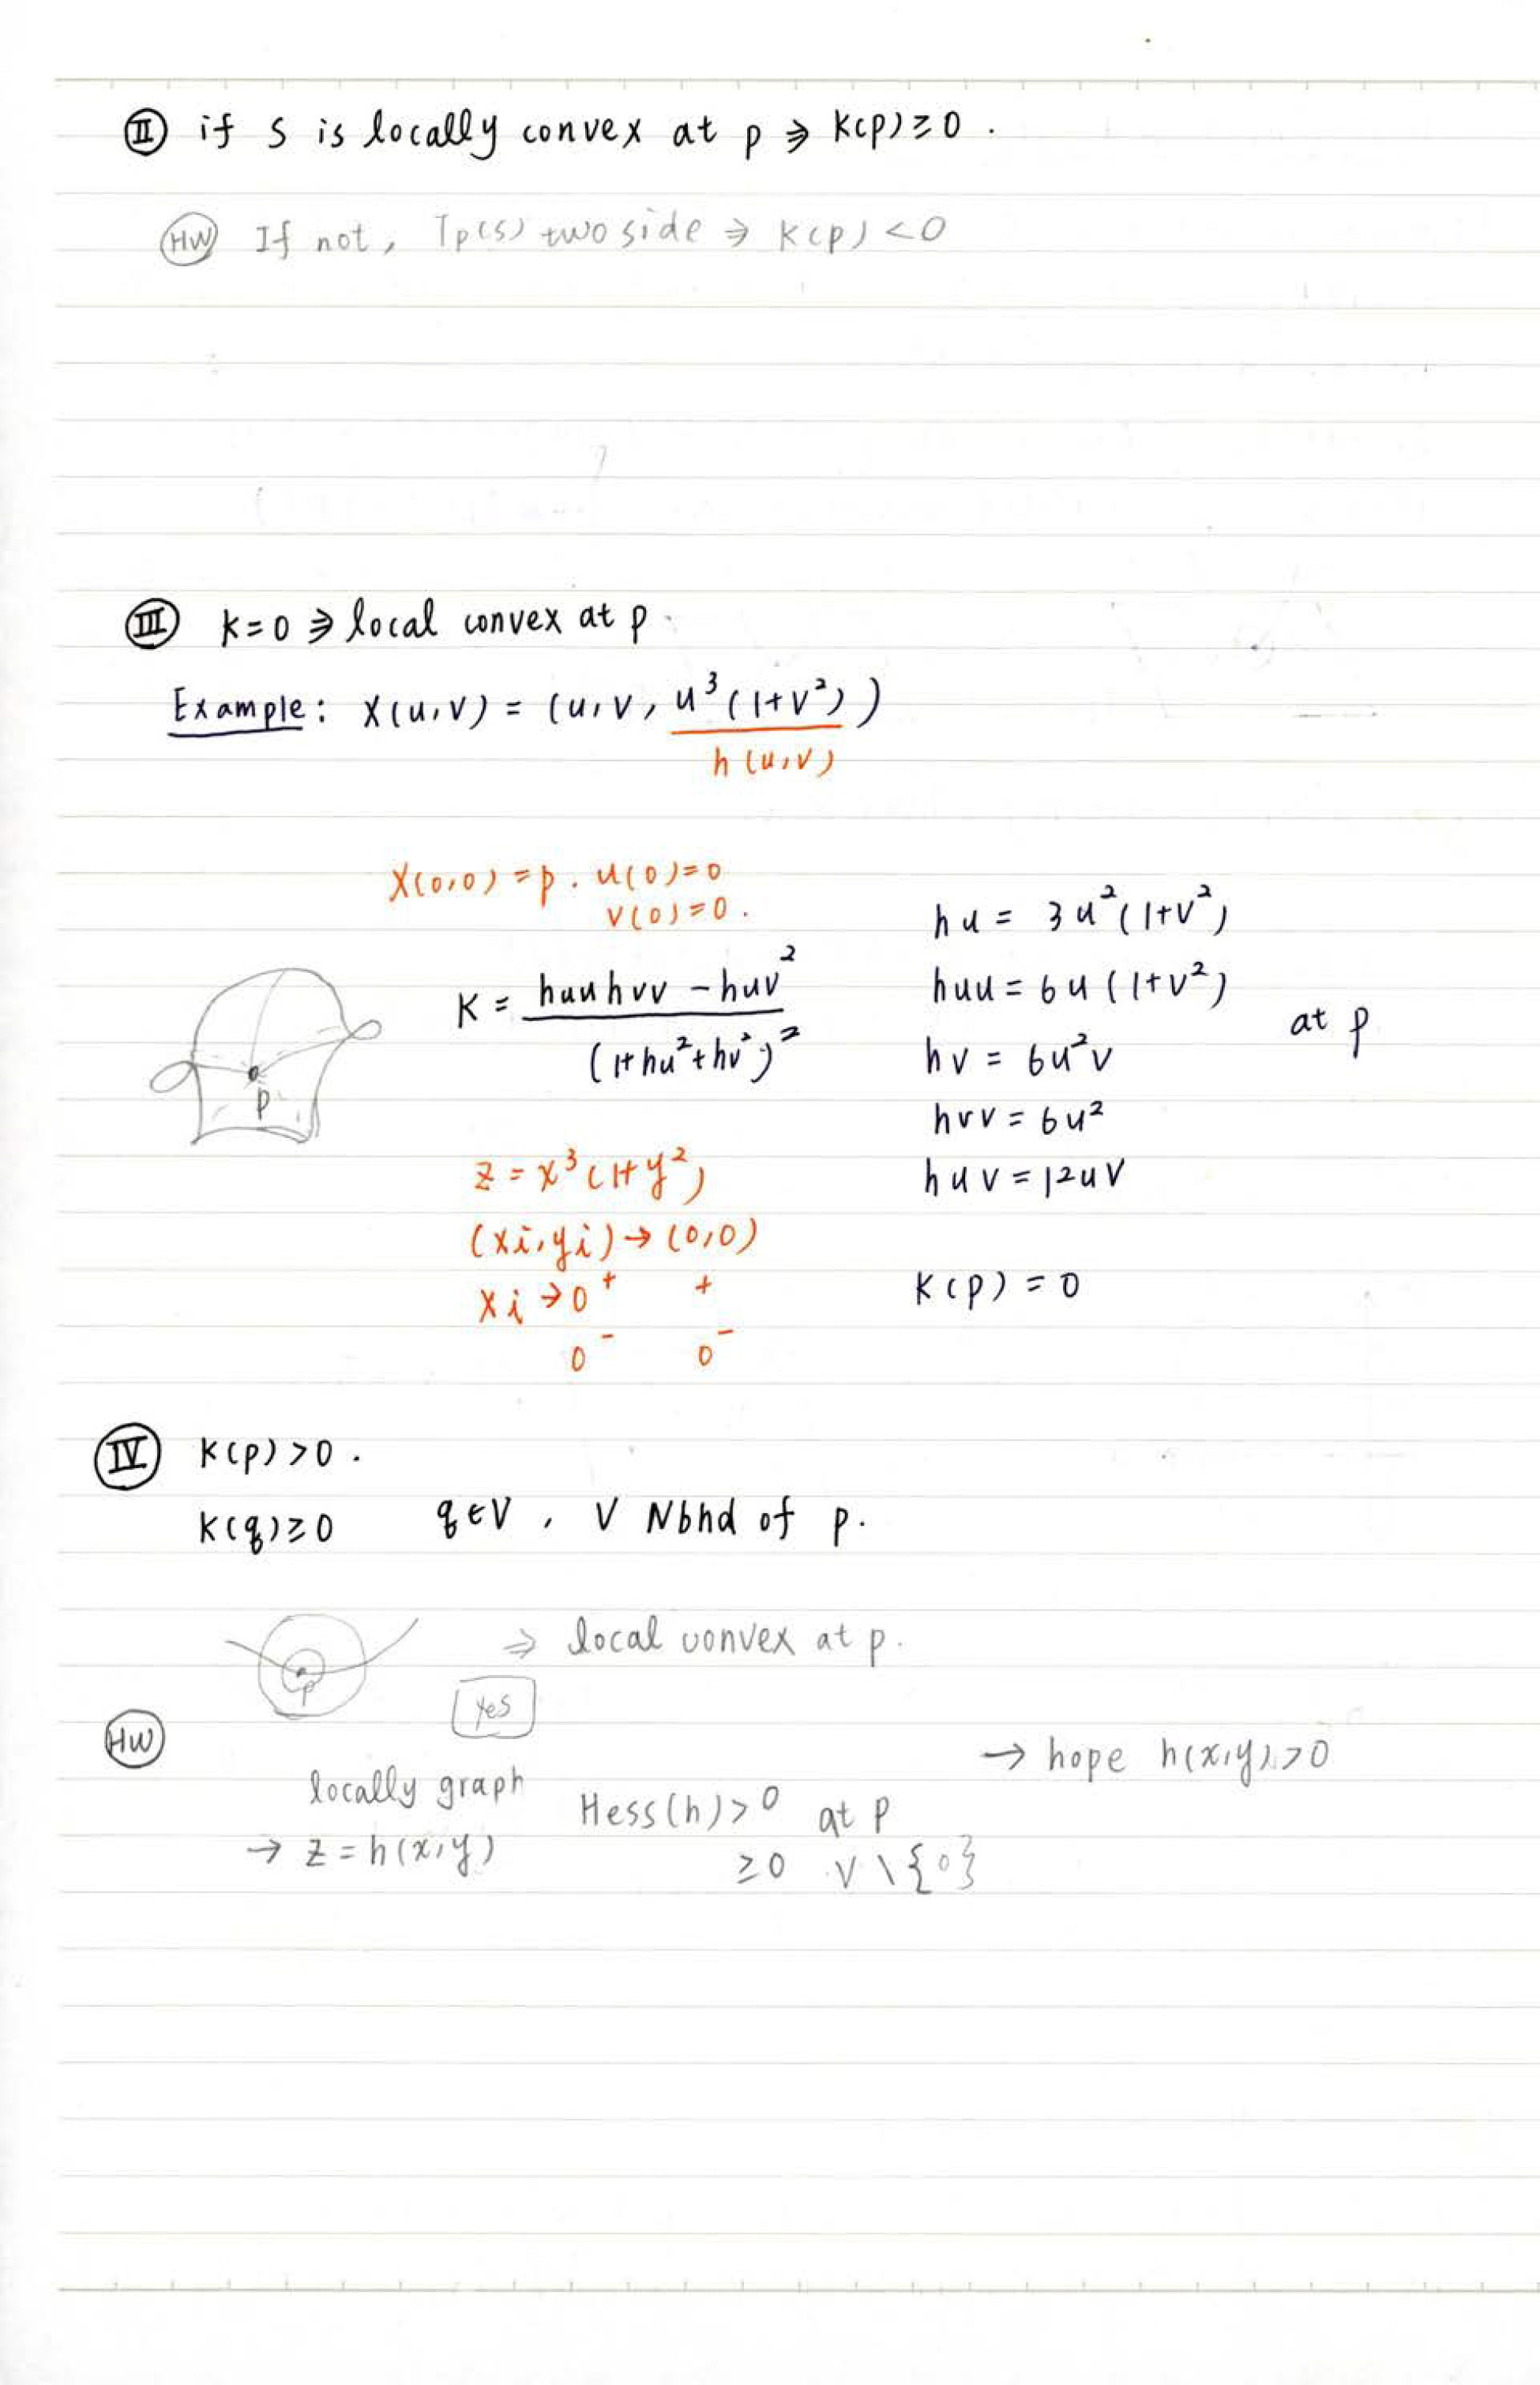 Ⅱ if S is locally convex at p ⇒ K(p) ≥ 0 .
HW If not, Tp(S) two side ⇒ K(p) < 0
Ⅲ K=0 ⇏ local convex at p.
Example: X(u,v) = (u,v, u³(1+v²))
h(u,v)
X(0,0) = p . u(0)=0
v(0)=0 .
K = huu hvv - huv² / (1+hu²+hv²)²
p
hu = 3u²(1+v²)
huu = 6u(1+v²)
at p
hv = 6u²v
hvv = 6u²
huv = 12uv
K(p) = 0
z = x³(1+y²)
(xi,yi) → (0,0)
xi → 0⁺ +
0⁻ 0⁻
Ⅳ K(p) > 0 .
K(q) ≥ 0 q∈V , V Nbhd of p.
p
⇒ local convex at p.
yes
HW
→ hope h(x,y) > 0
locally graph
→ z = h(x,y)
Hess(h) > 0 at p
≥ 0 V \ {0}